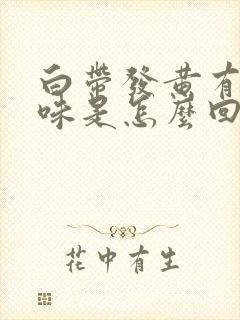 白帶發黃有
味是怎麼回
花中有生